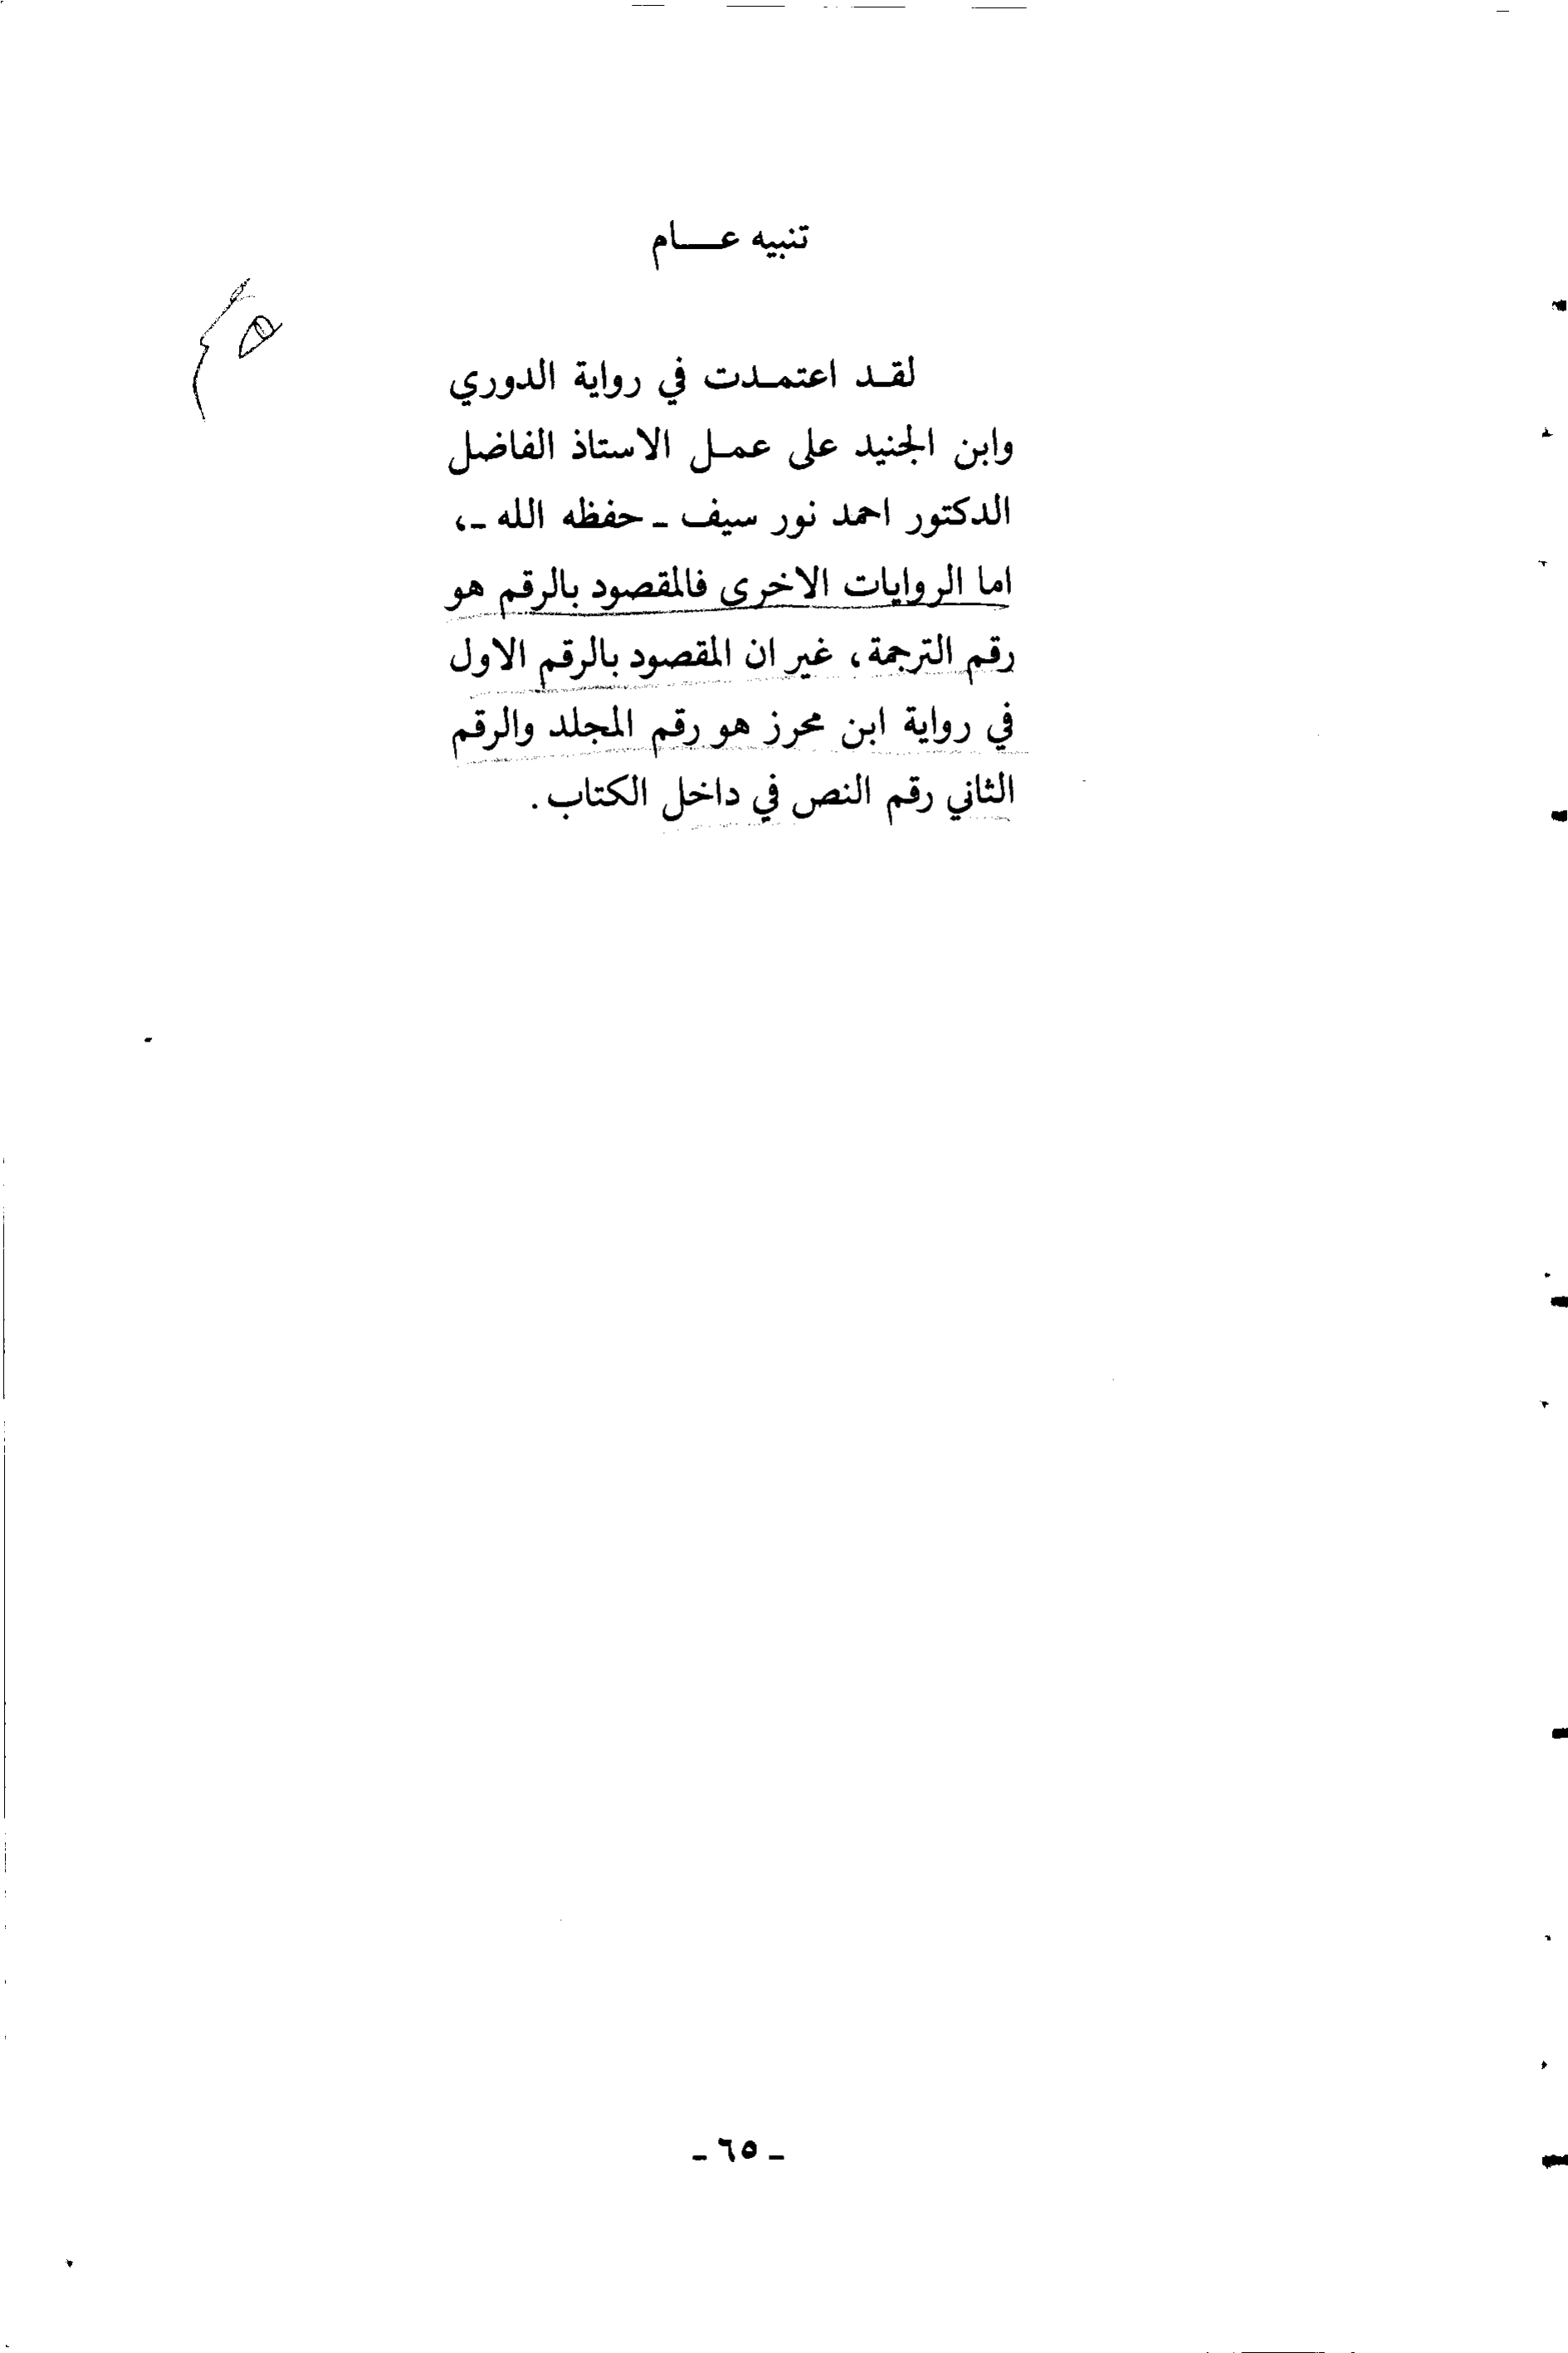 تنبيه عـــام
لقـد اعتمـدت في رواية الدوري
وابن الجنيد على عمـل الاستاذ الفاضل
الدكتور احمد نور سيف ـ حفظه الله ـ،
اما الروايات الاخرى فالمقصود بالرقم هو
رقم الترجمة، غير ان المقصود بالرقم الاول
في رواية ابن محرز هو رقم المجلد والرقم
الثاني رقم النص في داخل الكتاب.
ـ ٦٥ ـ